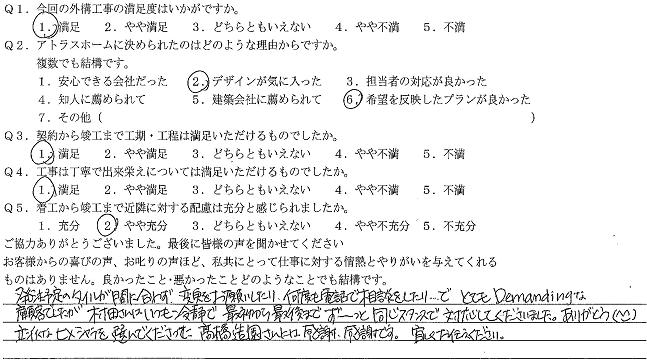 Q1．今回の外構工事の満足度はいかがですか。
1．満足　2．やや満足　3．どちらともいえない　4．やや不満　5．不満
Q2．アトラスホームに決められたのはどのような理由からですか。
複数でも結構です。
1．安心できる会社だった　2．デザインが気に入った　3．担当者の対応が良かった
4．知人に薦められて　5．建築会社に薦められて　6．希望を反映したプランが良かった
7．その他（　　　）
Q3．契約から竣工まで工期・工程は満足いただけるものでしたか。
1．満足　2．やや満足　3．どちらともいえない　4．やや不満　5．不満
Q4．工事は丁寧で出来栄えについては満足いただけるものでしたか。
1．満足　2．やや満足　3．どちらともいえない　4．やや不満　5．不満
Q5．着工から竣工まで近隣に対する配慮は充分と感じられましたか。
1．充分　2．やや充分　3．どちらともいえない　4．やや不充分　5．不充分
ご協力ありがとうございました。最後に皆様の声を聞かせてください
お客様からの喜びの声、お叱りの声ほど、私共にとって仕事に対する情熱とやりがいを与えてくれる
ものはありません。良かったこと・悪かったことどのようなことでも結構です。
発注予定のタイルが間に合わず 変更をお願いしたり、何度も電話で相談をしたり…で とてもDemandingな
顧客でしたが 村田さんはいつも冷静で 最初から最後まで ずーっと同じスタンスで 対応してくださいました。ありがとう(^^)
立派なヒメシャラを 選んでくださった 高橋造園さんには 感謝、感謝です。 宜しくお伝えください。